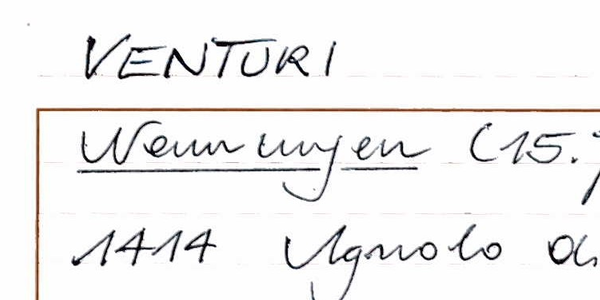 VENTURI
Nennungen (15.
1414 Agnolo